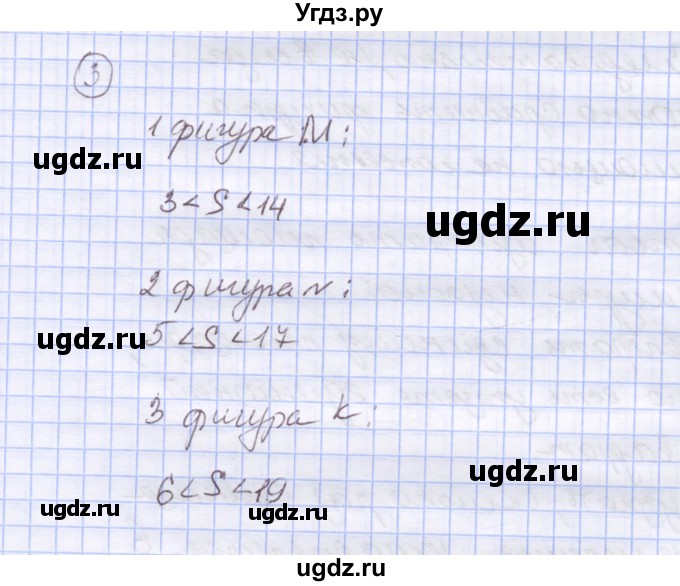 Угдз.ру
3
1 фигура М:
ugdz.ru
3 < S < 14
ugdz.ru
ugdz.ru
2 фигура N:
ugdz.ru
5 < S < 17
ugdz.ru
3 фигура К:
ugdz.ru
6 < S < 19
ugdz.ru
ugdz.ru
ugdz.ru